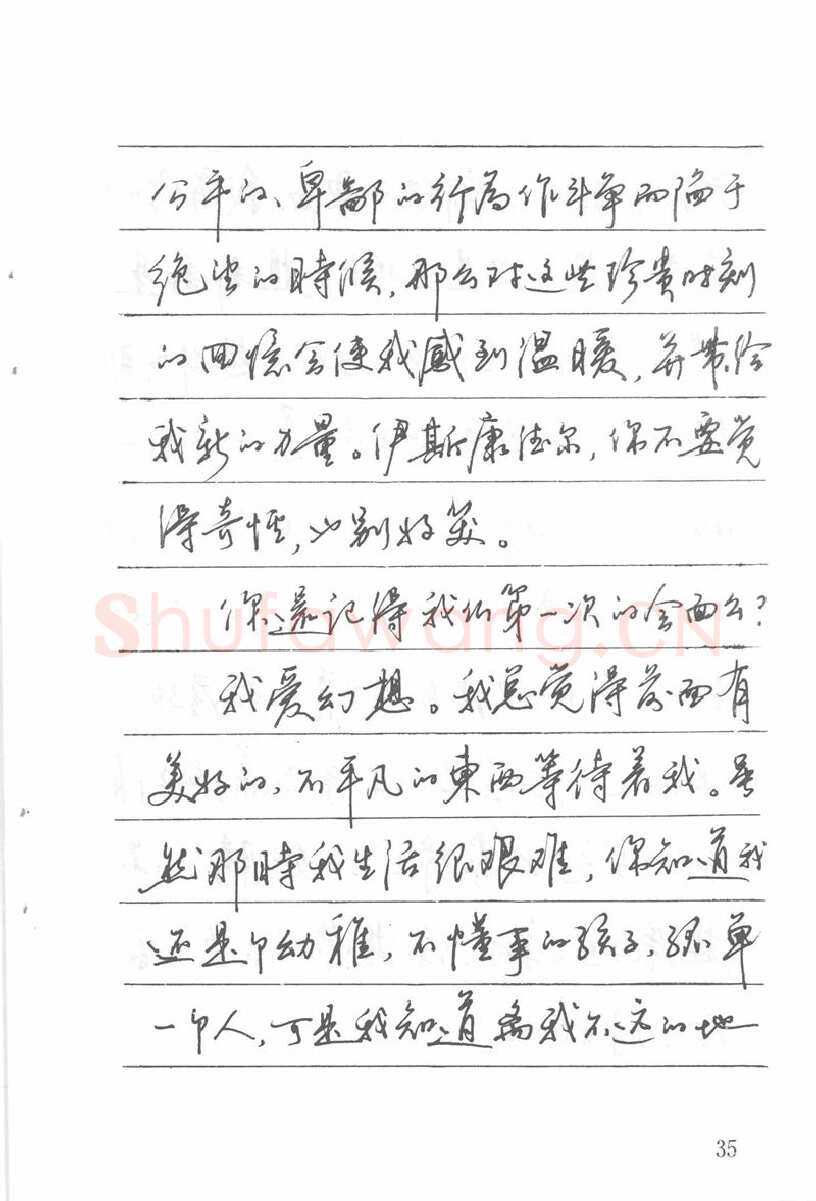 公平的、卑鄙的行为作斗争而陷于
绝望的時候，那么对这些珍贵时刻
的回憶会使我感到温暖，并带给
我新的力量。伊斯康德尔，你不要觉
得奇怪，也别好笑。
你還记得我们第一次的会面么？
我爱幻想。我总觉得前面有
美好的、不平凡的東西等待着我。虽
然那時我生活很艰难，你知道我
还是个幼稚，不懂事的孩子，孤单
一个人，可是我知道离我不远的地
Shufawang.CN
35